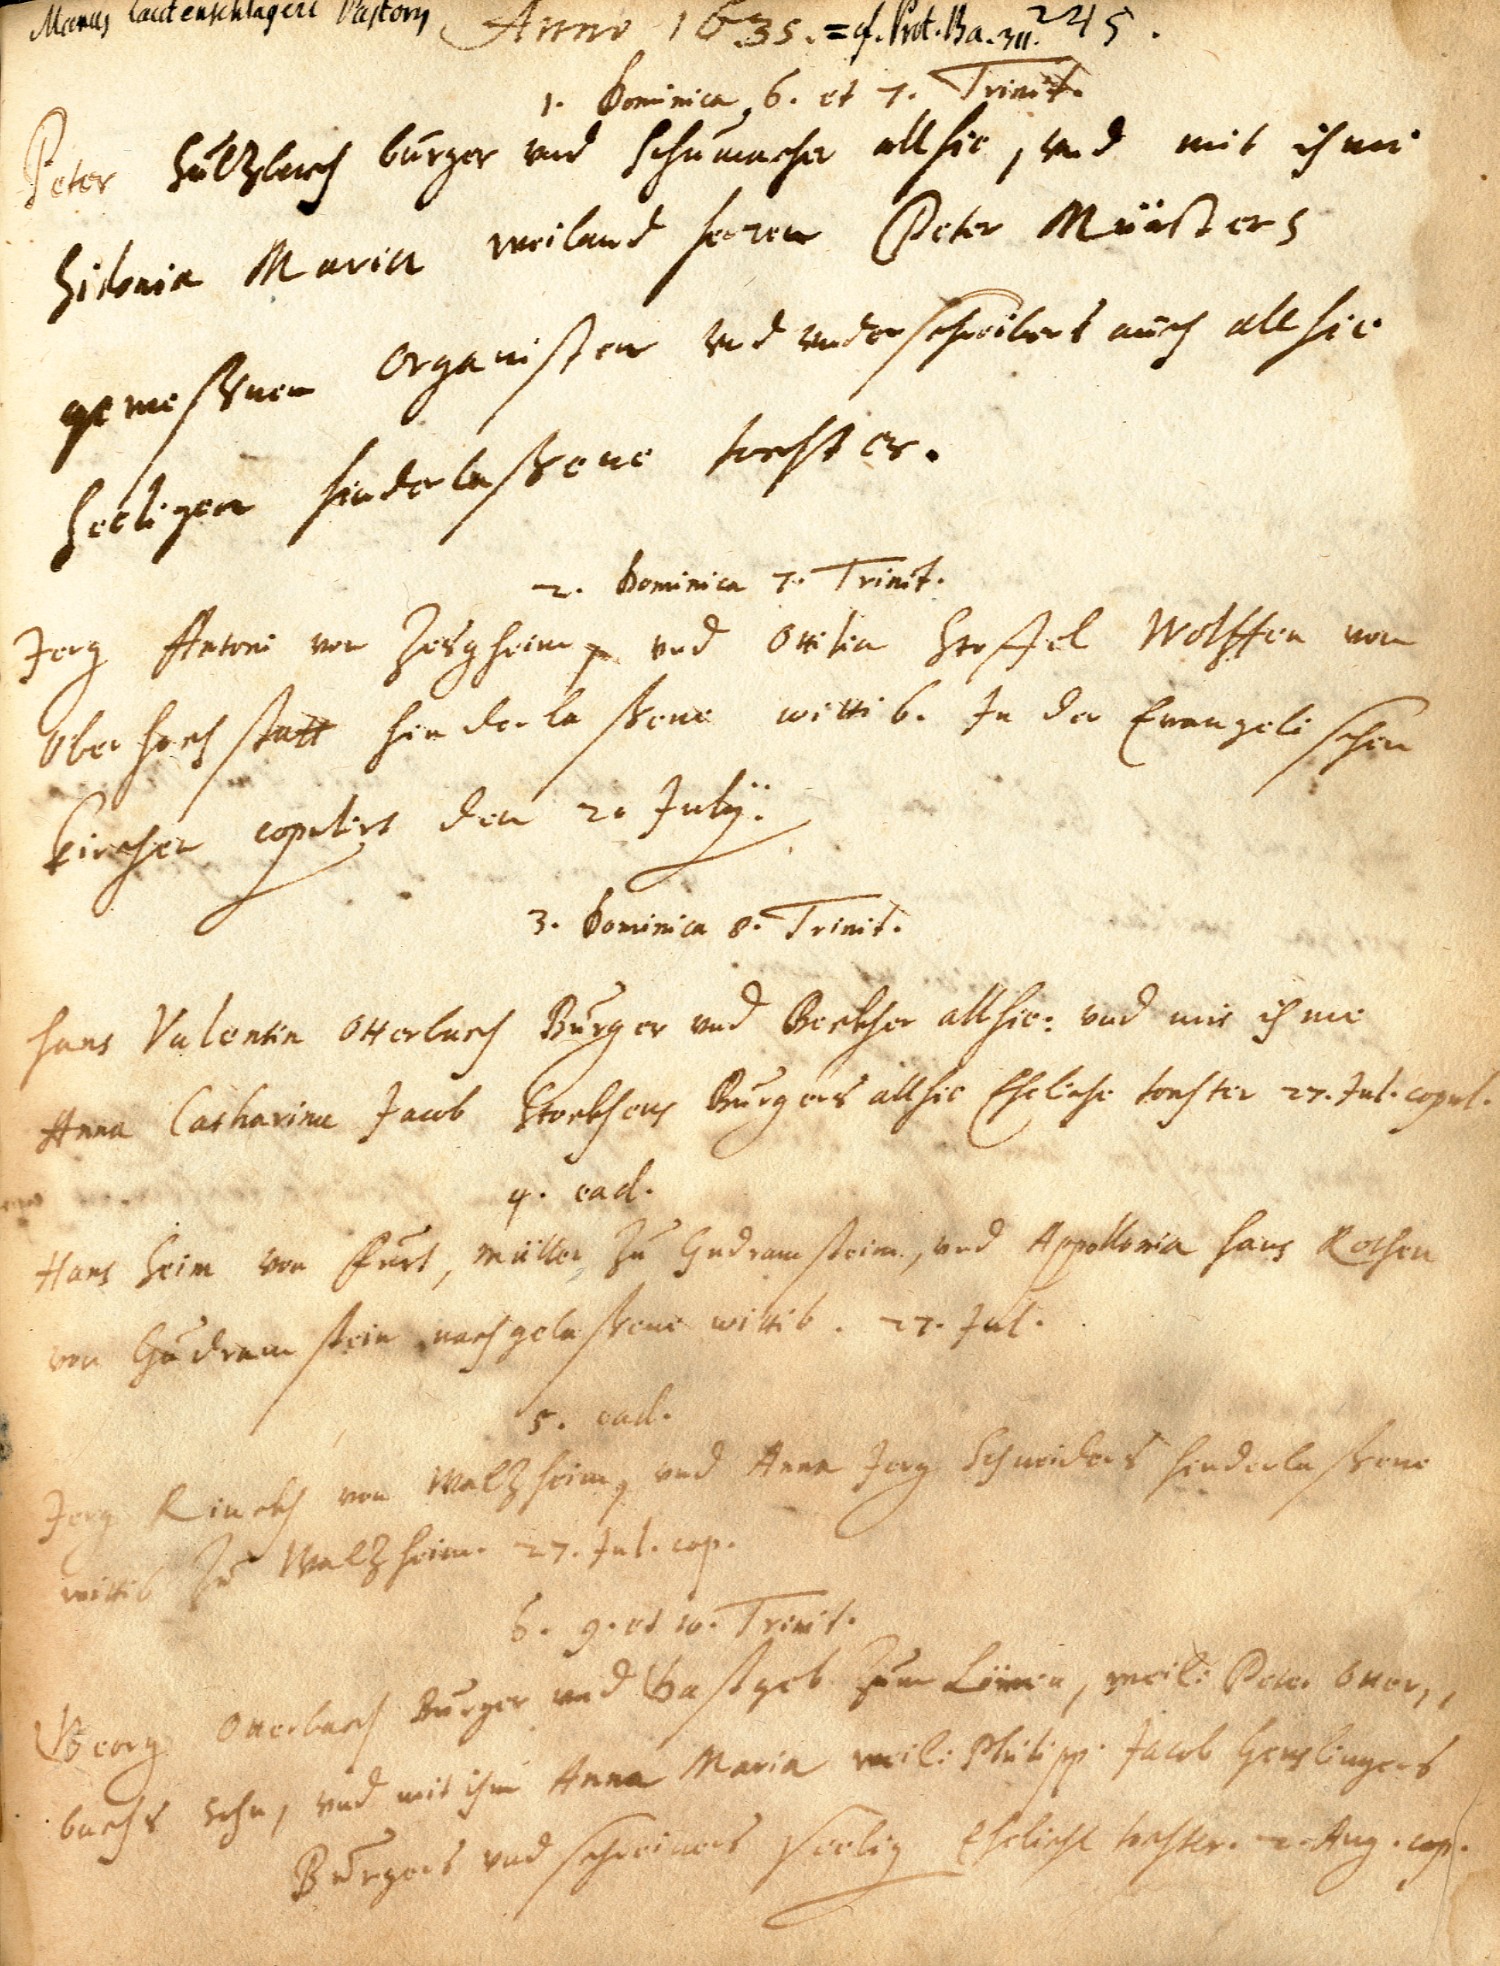 Manus Lautenschlageri Pastoris Anno 1635. = cf. Prot. Ba. III. 245.
1. Dominica, 6. et 7. Trinit.
Peter Sultzbach burger und Schumacher allhie, und mit ihme
Sidonia Maria weiland herren Peter Münsters
geweßnen Organisten und underschreibers auch allhie
Seeligen hinderlaßene tochter.
2. Dominica 7. Trinit.
Jerg Antoni von und Ottilia Stoffel Wolffen von
Oberhochstatt hinderlaßene wittib. In der Evangelischen
Kirchen copulirt den 20 Julij.
3. Dominica 8. Trinit.
Hans Valentin Otterbach Burger und Beckher allhie: und mit ihme
Anna Catharina Jacob Burgers allhie Eheliche tochter 27. Jul. copul.
4. ead.
Hans Heim von Furt, Müller zu Gudramstein, und Appollonia Hans Rothen
von Gudramstein nachgelaßene wittib. 27. Jul.
5. ead.
Jerg Rinckh von Walßheim, und Anna Jerg Schneiders hinderlaßene
wittib zu Walßheim. 27. Jul. cop.
6. 9. et 10. Trinit.
Georg Otterbach Burger und Gastgeb zum Löwen, weil: Peter Otter,,
bachs sohn, und mit ihm Anna Maria weil: Philipp Jacob
Burgers und schreiners seelig Eheliche tochter. 2. Aug. cop.